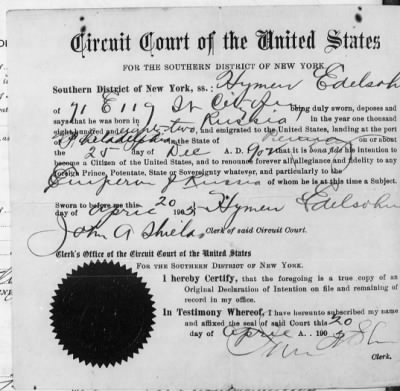 Circuit Court of the United States
FOR THE SOUTHERN DISTRICT OF NEW YORK.
Southern District of New York, ss.: Hymen Edelsohn
of 71 E 119 St City being duly sworn, deposes and
says that he was born in Russia in the year one thousand
eight hundred and seventy two, and emigrated to the United States, landing at the port
of Philadelphia in the State of on or about
the 25 day Dec A. D. that it is bona fide his intention to
become a Citizen of the United States, and to renounce forever all allegiance and fidelity to any
foreign Prince, Potentate, State or Sovereignty whatever, and particularly to the
Emperor of Russia of whom he is at this time a Subject.
Sworn to before me this 20
day of April 190 Hymen Edelsohn
John A Shields Clerk of said Circuit Court.
Clerk's Office of the Circuit Court of the United States
FOR THE SOUTHERN DISTRICT OF NEW YORK.
I hereby Certify, that the foregoing is a true copy of an
Original Declaration of Intention on file and remaining of
record in my office.
In Testimony Whereof, I have hereunto subscribed my name
and affixed the seal of said Court this 20
day of April 190
Clerk.